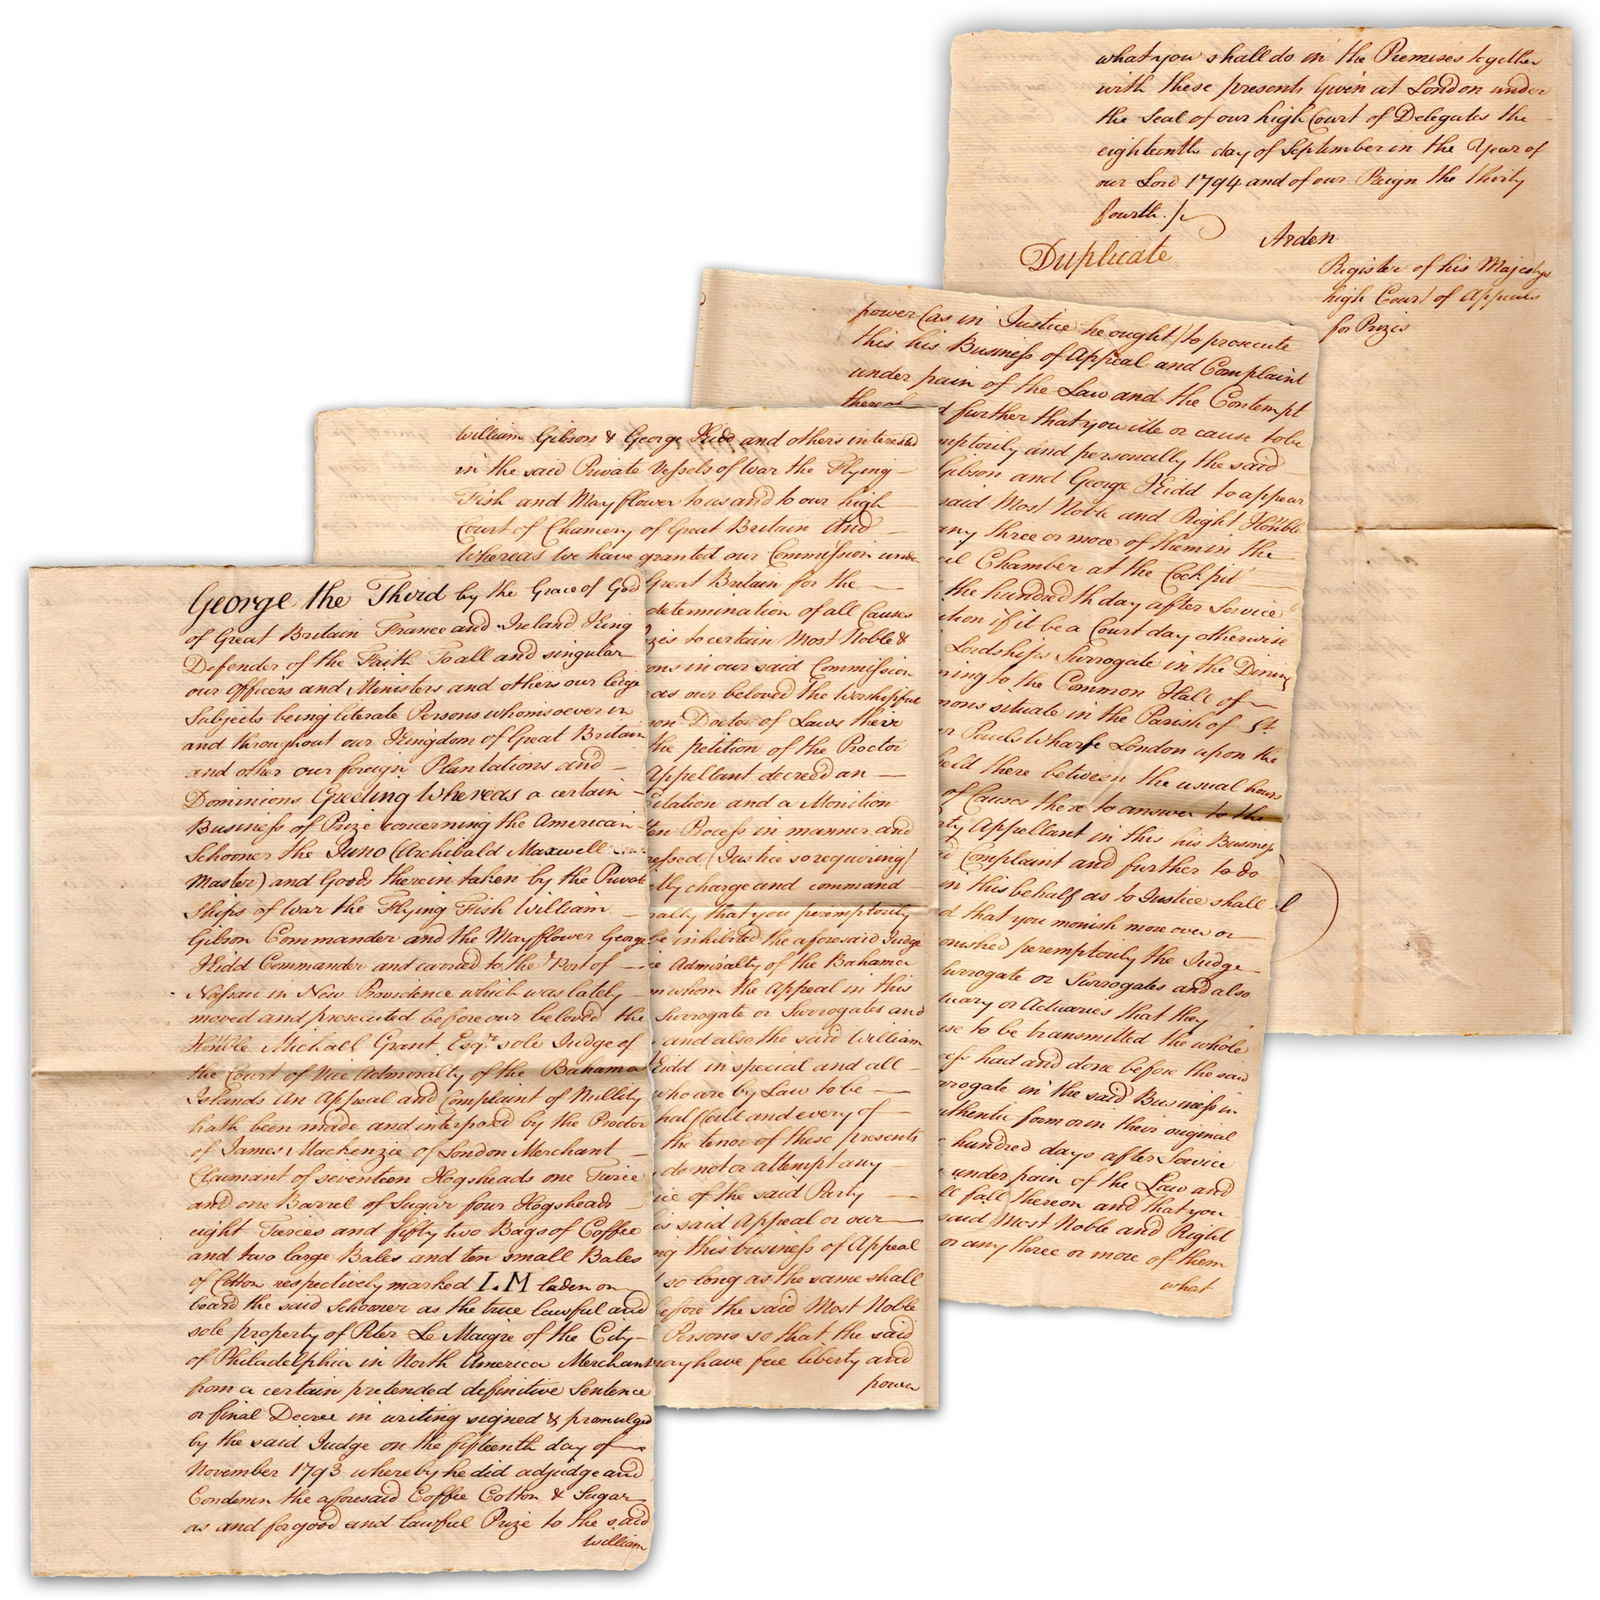 George the Third by the Grace of God
of Great Britain France and Ireland King
Defender of the Faith To all and singular
our Officers and Ministers and others our liege
Subjects being literate Persons whomsoever in
and throughout our Kingdom of Great Britain
and other our foreign Plantations and
Dominions Greeting Whereas a certain
Business of Prize concerning the American
Schooner the Juno (Archibald Maxwell
Master) and Goods therein taken by the Private
Ships of War the Flying Fish William
Gibson Commander and the Mayflower George
Kidd Commander and carried to the Port of
Nassau in New Providence which was lately
moved and prosecuted before our beloved the
Honble Michael Grant Esqr. sole Judge of
the Court of Vice Admiralty of the Bahama
Islands An Appeal and Complaint of Nullity
hath been made and interposed by the Proctor
of James Mackenzie of London Merchant
Claimant of seventeen Hogsheads one Tierce
and one Barrel of Sugar four Hogsheads
eight Tierces and fifty two Bags of Coffee
and two large Bales and ten small Bales
of Cotton respectively marked I.M laden on
board the said Schooner as the true lawful and
sole property of Peter Le Maigre of the City
of Philadelphia in North America Merchant
from a certain pretended definitive Sentence
or final Decree in writing signed & promulged
by the said Judge on the fifteenth day of
November 1793 whereby he did adjudge and
Condemn the aforesaid Coffee Cotton & Sugar
as and for good and lawful Prize to the said
William
William Gibson & George Kidd and others interested
in the said Private Vessels of War the Flying
Fish and Mayflower to us and to our high
Court of Chancery of Great Britain And
Whereas We have granted our Commission under
Great Britain for the
determination of all Causes
to certain Most Noble &
in our said Commission
as our beloved the Worshipful
Doctor of Laws their
the petition of the Proctor
Appellant decreed an
Citation and a Monition
Process in manner and
(Justice so requiring)
charge and command
that you peremptorily
be inhibited the aforesaid Judge
Admiralty of the Bahama
whom the Appeal in this
Surrogate or Surrogates and
and also the said William
Kidd in special and all
who are by Law to be
all and every of
the tenor of these presents
do not or attempt any
of the said Party
said Appeal or our
this business of Appeal
so long as the same shall
before the said Most Noble
Persons so that the said
may have free liberty and
power
power (as in Justice he ought) to prosecute
this his Business of Appeal and Complaint
under pain of the Law and the Contempt
thereof further that you cite or cause to be
and personally the said
Gibson and George Kidd to appear
said Most Noble and Right Honble
any three or more of them in the
Chamber at the Cockpit
the hundredth day after Service
if it be a Court day otherwise
Lordships Surrogate in the Dining
to the Common Hall of
situate in the Parish of St
Pauls Wharfe London upon the
held there between the usual hours
of Causes there to answer to the
Appellant in this his Business
Complaint and further to do
in this behalf as to Justice shall
that you monish moreover or
peremptorily the Judge
Surrogate or Surrogates and also
or Actuaries that they
to be transmitted the whole
had and done before the said
in the said Business in
form or in their original
hundred days after Service
under pain of the Law and
fall thereon and that you
said Most Noble and Right
or any three or more of them
what
what you shall do in the Premises together
with these presents Given at London under
the Seal of our high Court of Delegates the
eighteenth day of September in the Year of
our Lord 1794 and of our Reign the thirty
fourth.
Arden
Duplicate
Register of his Majestys
high Court of Appeals
for Prizes